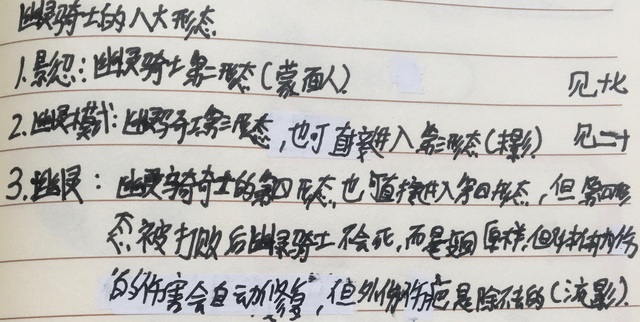 幽灵骑士的八大形态
1.影忍:幽灵骑士第二形态(蒙面人) 见十七
2.幽灵模式:幽灵骑士第三形态,也可直接进入第三形态(掠影) 见二十
3.幽灵:幽灵骑士的第四形态,也可直接进入第四形态,但第四形
态被打败后幽灵骑士不会死,而是变回原样,但体内伤
的伤害会自动修复,但外伤伤疤是除不去的(流影).